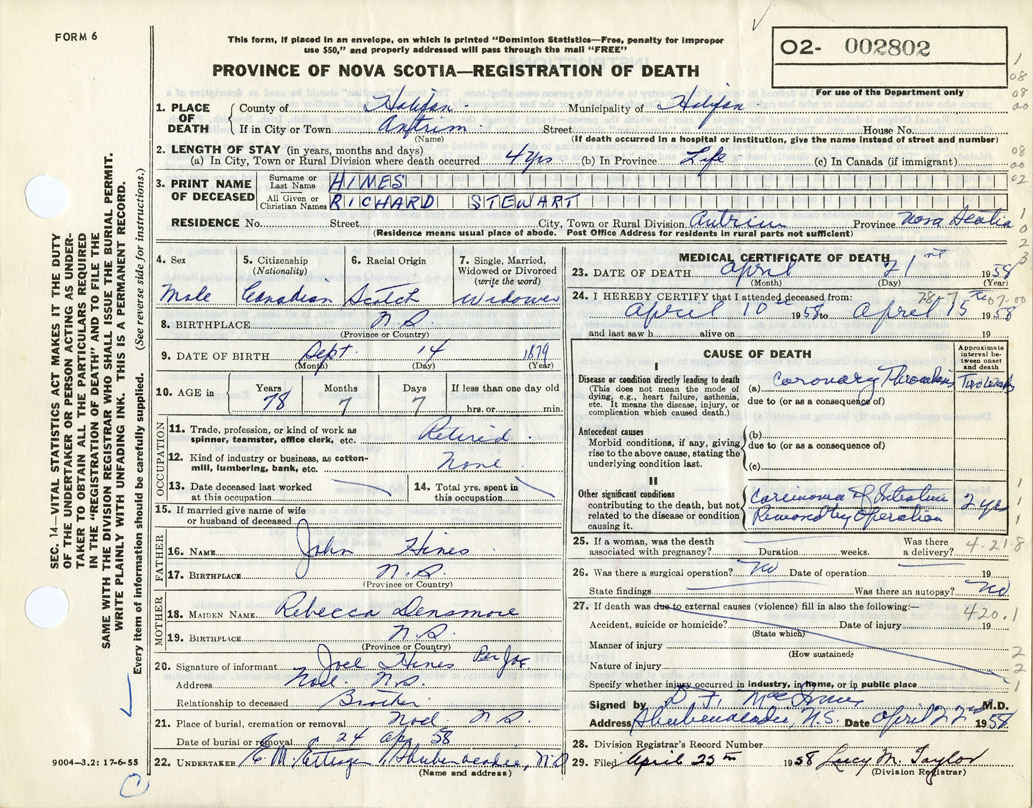 FORM 6
This form, if placed in an envelope, on which is printed "Dominion Statistics—Free, penalty for improper
use $50," and properly addressed will pass through the mail "FREE"
O2- 002802
For use of the Department only
PROVINCE OF NOVA SCOTIA—REGISTRATION OF DEATH
SEC. 14—VITAL STATISTICS ACT MAKES IT THE DUTY
OF THE UNDERTAKER OR PERSON ACTING AS UNDER-
TAKER TO OBTAIN ALL THE PARTICULARS REQUIRED
IN THE "REGISTRATION OF DEATH" AND TO FILE THE
SAME WITH THE DIVISION REGISTRAR WHO SHALL ISSUE THE BURIAL PERMIT.
WRITE PLAINLY WITH UNFADING INK. THIS IS A PERMANENT RECORD.
Every item of information should be carefully supplied. (See reverse side for instructions.)
1. PLACE OF DEATH
County of Halifax Municipality of Halifax
If in City or Town Antrim Street House No.
(Name) (If death occurred in a hospital or institution, give the name instead of street and number)
2. LENGTH OF STAY (in years, months and days)
(a) In City, Town or Rural Division where death occurred 4 yrs (b) In Province Life (c) In Canada (if immigrant)
3. PRINT NAME OF DECEASED
Surname or Last Name HINES
All Given or Christian Names RICHARD STEWART
RESIDENCE No. Street City, Town or Rural Division Antrim Province Nova Scotia
(Residence means usual place of abode. Post Office Address for residents in rural parts not sufficient)
4. Sex Male
5. Citizenship (Nationality) Canadian
6. Racial Origin Scotch
7. Single, Married, Widowed or Divorced (write the word) Widower
8. BIRTHPLACE N.S.
(Province or Country)
9. DATE OF BIRTH Sept 14 1879
(Month) (Day) (Year)
10. AGE in Years 78 Months 7 Days 7 If less than one day old hrs. or min.
OCCUPATION
11. Trade, profession, or kind of work as spinner, teamster, office clerk, etc. Retired
12. Kind of industry or business, as cotton-mill, lumbering, bank, etc. None
13. Date deceased last worked at this occupation
14. Total yrs. spent in this occupation
15. If married give name of wife or husband of deceased
FATHER
16. NAME John Hines
17. BIRTHPLACE N.S.
(Province or Country)
MOTHER
18. MAIDEN NAME Rebecca Densmore
19. BIRTHPLACE N.S.
(Province or Country)
20. Signature of informant Joel Hines Per
Address Noel N.S.
Relationship to deceased Brother
21. Place of burial, cremation or removal Noel N.S.
Date of burial or removal 24 Apr 58
22. UNDERTAKER E.M. Ettinger Shubenacadie, N.S.
(Name and address)
9004—3.2: 17-6-55
MEDICAL CERTIFICATE OF DEATH
23. DATE OF DEATH April 21 1958
(Month) (Day) (Year)
24. I HEREBY CERTIFY that I attended deceased from:
April 10 1958 to April 15 1958
and last saw h alive on 19
CAUSE OF DEATH
Approximate interval between onset and death
I
Disease or condition directly leading to death
(This does not mean the mode of dying, e.g., heart failure, asthenia, etc. It means the disease, injury, or complication which caused death.)
(a) Coronary Thrombosis Two Weeks
due to (or as a consequence of)
Antecedent causes
Morbid conditions, if any, giving rise to the above cause, stating the underlying condition last.
(b)
due to (or as a consequence of)
(c)
II
Other significant conditions
contributing to the death, but not related to the disease or condition causing it.
Carcinoma of Intestine
Removed by Operation 2 yrs
25. If a woman, was the death associated with pregnancy? Duration weeks. Was there a delivery? 4-21-8
26. Was there a surgical operation? No Date of operation 19
State findings Was there an autopsy? No
27. If death was due to external causes (violence) fill in also the following:—
420.1
Accident, suicide or homicide? Date of injury 19
(State which)
Manner of injury
(How sustained)
Nature of injury
Specify whether injury occurred in industry, in home, or in public place
Signed by D. F. M.D.
Address Shubenacadie, N.S. Date April 22nd 1958
28. Division Registrar's Record Number
29. Filed April 25th 1958 Lucy M. Taylor
(Division Registrar)